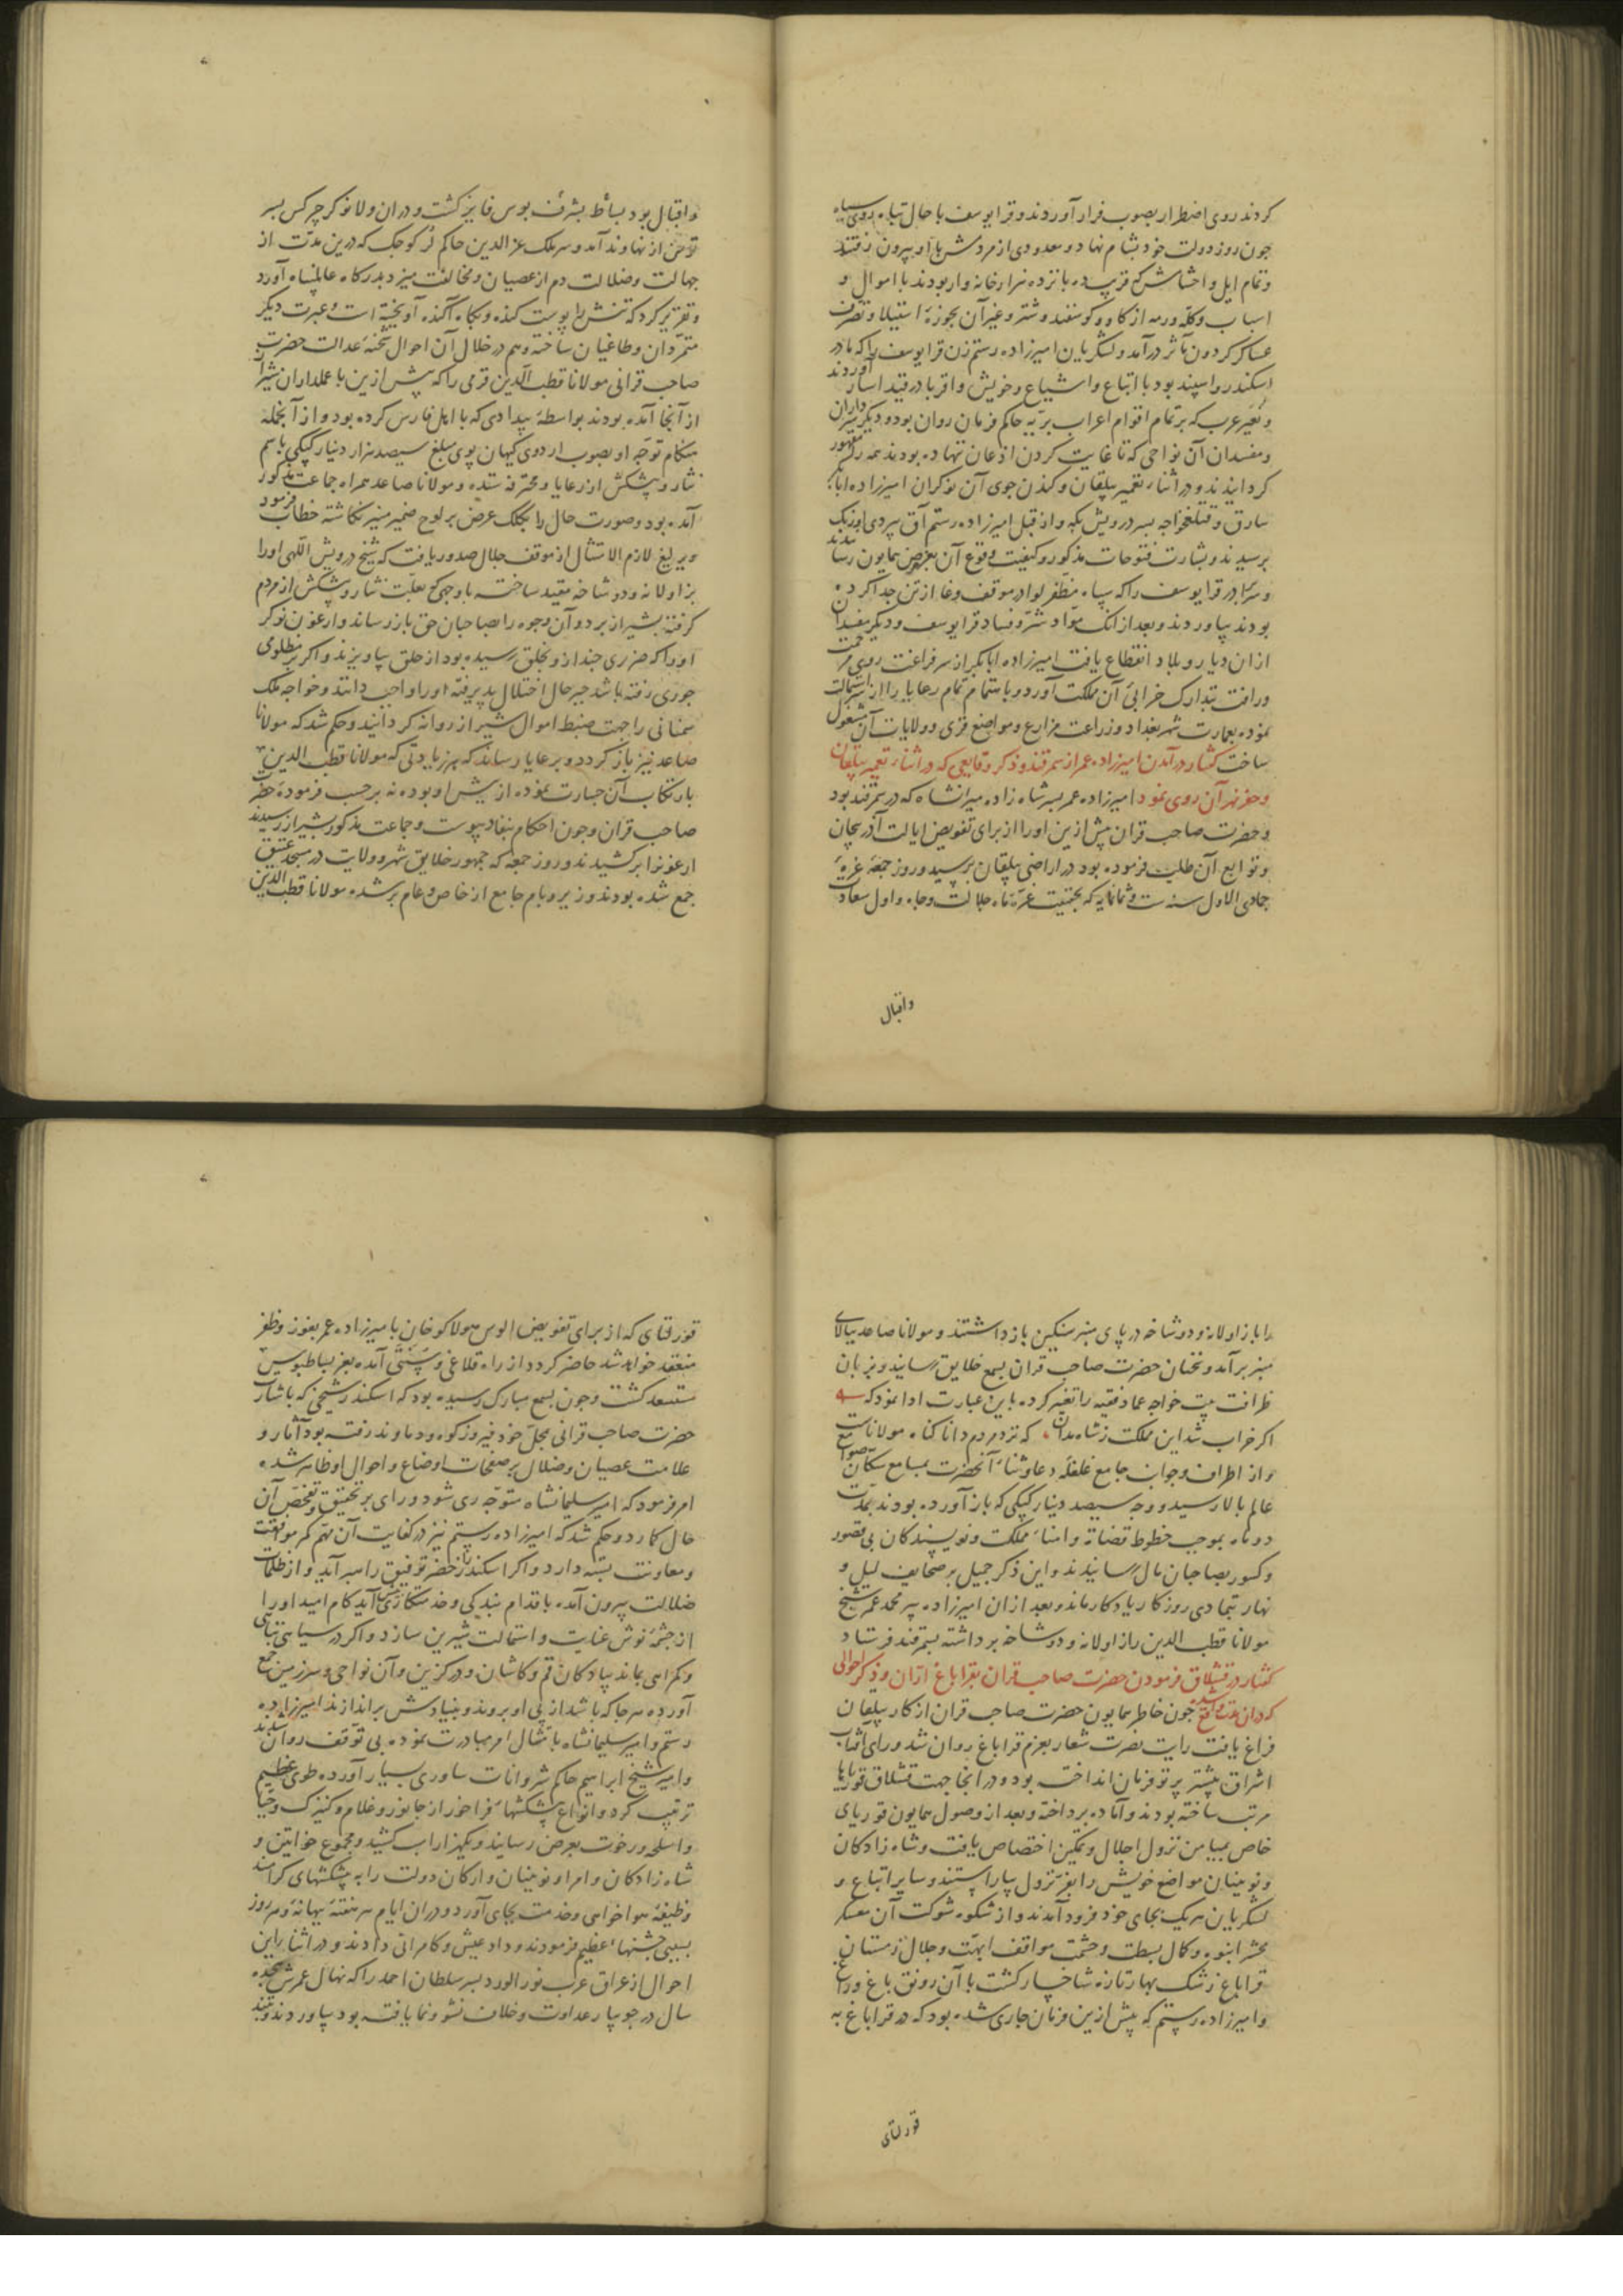 کردند روی اضطرار بصوب فرار آوردند و قرایوسف با حال تباه و روی سیاه
چون روز دولت خود بشام نهاد و معدودی از مردمش با او بیرون رفتند
و تمام ایل و احشامش که قریب ده پانزده هزار خانه وار بودند با اموال و
اسباب و گله و رمه از کاو و کوسفند و شتر و غیر آن بحوزهٔ استیلا و تصرف
عساکر کردون مآثر درآمد و لشکریان امیرزاده رستم زن قرایوسف را که مادر
اسکندر و اسپند بود با اتباع و اشیاع و خویش و اقربا در قید اسار آوردند
و نُعَیر عرب که بر تمام اقوام اعراب بریّه حاکم فرمان روان بود و دیکر سرداران
و مفسدان آن نواحی که تا غایت کردن اذعان ننهاده بودند همه را مقهور
کردانیدند و در اثناء تعمیر بیلقان و کندن جوی آن نوکران امیرزاده ابابکر
سارق و قتلغخواجه پسر درویش بکه و از قبل امیرزاده رستم آق سردی اوزبک
برسیدند و بشارت فتوحات مذکور و کیفیت وقوع آن بعرض همایون رسانیدند
و سر برادر قرایوسف را که سپاه مظفر لوا در موقف وغا از تن جدا کرده
بودند بیاوردند و بعد از آنک مواد شر و فساد قرایوسف و دیکر مفسدان
ازان دیار و بلاد انقطاع یافت امیرزاده ابابکر از سر فراغت روی مرحمت
و رافت بتدارک خرابی آن مملکت آورد و باهتمام تمام رعایا را استمالت
نموده بعمارت شهر بغداد و زراعت مزارع و مواضع قری و ولایات آن مشغول
ساخت گفتار در آمدن امیرزاده عمر از سمرقند و ذکر وقایعی که در اثناء تعمیر بیلقان
و حفر نهر آن روی نمود امیرزاده عمر پسر شاه زاده میرانشاه که در سمرقند بود
و حضرت صاحب قران پیش ازین او را از برای تفویض ایالت آذربیجان
و توابع آن طلب فرموده بود در اراضی بیلقان برسید و روز جمعه غرّهٔ
جمادی الاول سنه ست و ثمانمایه که بحقیقت غرّهٔ ماه جلالت و جاه و اول سعادت
واقبال
واقبال بود بشرف بساط بوس فایز کشت و دران ولا نوکر چرکس پسر
تومن از نهاوند آمد و سر ملک عز الدین حاکم لُر کوچک که درین مدّت از
جهالت و ضلالت دم از عصیان و مخالفت میزد بدرکاه عالمپناه آورد
و تقریر کرد که تنش را پوست کنده و بکاه آکنده آویخته است و عبرت دیکر
متمرّدان و طاغیان ساخته و هم در خلال آن احوال شحنهٔ عدالت حضرت
صاحب قرانی مولانا قطب الدین قرمی را که پیش ازین با عملداران شیراز
از آنجا آمده بودند بواسطهٔ بیدادی که با اهل فارس کرده بود و از آنجمله
هنکام توجّه او بصوب اردوی کیهان پوی مبلغ سیصد هزار دینار کپکی باسم
نثار و پیشکش از رعایا و محترفه ستده و مولانا صاعد همراه جماعت مذکور
آمده بود و صورت حال را بکلک عرض بر لوح ضمیر منیر نکاشته خطاب فرمود
و یرلیغ لازم الامتثال از موقف جلال صدور یافت که شیخ درویش اللهی او را
بزاولانه و دوشاخه مقید ساخته با وجهی که بعلّت نثار و پیشکش از مردم
کرفته بشیراز برد و آن وجوه را بصاحبان حق باز رساند و ارغون نوکر
او را که ضرری چند ازو بخلق رسیده بود از حلق بیاویزند و اکر بر مظلومی
جوری رفته باشد جبر حال اختلال پذیرفته او را واجب دانند و خواجه ملک
سمنانی را جهت ضبط اموال شیراز روانه کردانید و حکم شد که مولانا
صاعد نیز باز کردد و برعایا رساند که هر زیادتی که مولانا قطب الدین
بارتکاب آن جسارت نموده از پیش او بوده نه بر حسب فرمودهٔ حضرت
صاحب قران و چون احکام بنفاد پیوست و جماعت مذکور بشیراز رسیدند
ارغونرا برکشیدند و روز جمعه که جمهور خلایق شهر و ولایت در مسجد عتیق
جمع شده بودند و زیر و بام جامع از خاص و عام پر شده مولانا قطب الدین
را با زاولانه و دوشاخه در پای منبر سنکین بازداشتند و مولانا صاعد ببالای
منبر برآمد و سخنان حضرت صاحب قران بسمع خلایق رسانید و بزبان
ظرافت بیت خواجه عماد فقیه را تغییر کرده باین عبارت ادا نمود که
اکر خراب شد این مملکت ز شاه مدان که نزد مردم دانا کناه مولاناست
و از اطراف و جوانب جامع غلغلهٔ دعا و ثناء آنحضرت بمسامع سکّان صوامع
عالم بالا رسید و وجه سیصد دینار کپکی که باز آورده بودند بمدّت
دو ماه بموجب خطوط قضاة و امناء مملکت و نویسندکان بی قصور
و کسور بصاحبان مال رسانیدند و این ذکر جمیل بر صحایف لیل و
نهار بتمادی روزکار یادکار ماند و بعد ازان امیرزاده پیر محمد عمر شیخ
مولانا قطب الدین را زاولانه و دوشاخه برداشته بسمرقند فرستاد
گفتار در قشلاق فرمودن حضرت صاحب قران بقراباغ ارّان و ذکر احوالی
که دران مدت واقع شد چون خاطر همایون حضرت صاحب قران از کار بیلقان
فراغ یافت رایت نصرت شعار بعزم قراباغ روان شد و رای آفتاب
اشراق پیشتر پرتو فرمان انداخته بود و در آنجا جهت قشلاق قوریاها
مرتب ساخته بودند و آماده پرداخته و بعد از وصول همایون قوریای
خاص بمیامن نزول اجلال و تمکین اختصاص یافت و شاه زادکان
و نوینان مواضع خویش را بفرّ نزول بیاراستند و سایر اتباع و
لشکریان هر یک بجای خود فرود آمدند و از شکوه شوکت آن معسکر
محشر انبوه و کمال بسطت و حشمت مواقف ابهّت و جلال زمستان
قراباغ رشک بهار تازه شاخسار کشت با آن رونق باغ و راغ
و امیرزاده رستم که پیش ازین فرمان جاری شده بود که در قراباغ به
قورلتای
قورلتای که از برای تفویض الوس هولاکو خان بامیرزاده عمر بفوز و ظفر
منعقد خواهد شد حاضر کردد از راه قلاغی و سنتی آمده بعز بساطبوس
مستسعد کشت و چون بسمع مبارک رسیده بود که اسکندر شیخی که باشارت
حضرت صاحب قرانی بمحلّ خود فیروزکوه و دماوند رفته بود آثار و
علامت عصیان و ضلال بر صفحات اوضاع و احوال او ظاهر شده
امر فرمود که امیر سلیمانشاه متوجّه ری شود و رای بر تحقیق و تفحّص آن
حال کمارد و حکم شد که امیرزاده رستم نیز در کفایت آن مهم کمر موافقت
و معاونت بسته دارد و اکر اسکندر را خضر توفیق راهبر آید و از ظلمات
ضلالت بیرون آمده باقدام بندکی و خدمتکاری آید کام امید او را
از چشمهٔ نوش عنایت و استمالت شیرین سازد و اکر در سیاهی تباهی
و کمراهی بماند پیادکان قم و کاشان و درکزین و آن نواحی و سرزمین جمع
آورده هر جا که باشد از پی او بروند و بنیادش براندازند امیرزاده
رستم و امیر سلیمانشاه بامتثال امر مبادرت نموده بی توقف روان شدند
و امیر شیخ ابراهیم حاکم شروانات ساوری بسیار آورده طوی عظیم
ترتیب کرد و انواع پیشکشهاء فراخور از جانور و غلام و کنیزک و جیبا
و اسلحه و رخوت بعرض رسانید و یکهزار اسب کشید و مجموع خواتین و
شاه زادکان و امرا و نوینان و ارکان دولت را به پیشکشهای کرامند
وظیفهٔ هواخواهی و خدمت بجای آورد و دران ایام هر هفتهٔ ببهانهٔ و هر روز
بسببی جشنهاء عظیم فرمودند و داد عیش و کامرانی دادند و در اثناء این
احوال از عراق عرب نور الورد پسر سلطان احمد را که نهال عمرش هجده
سال در جویبار عداوت و خلاف نشو و نما یافته بود بیاوردند و